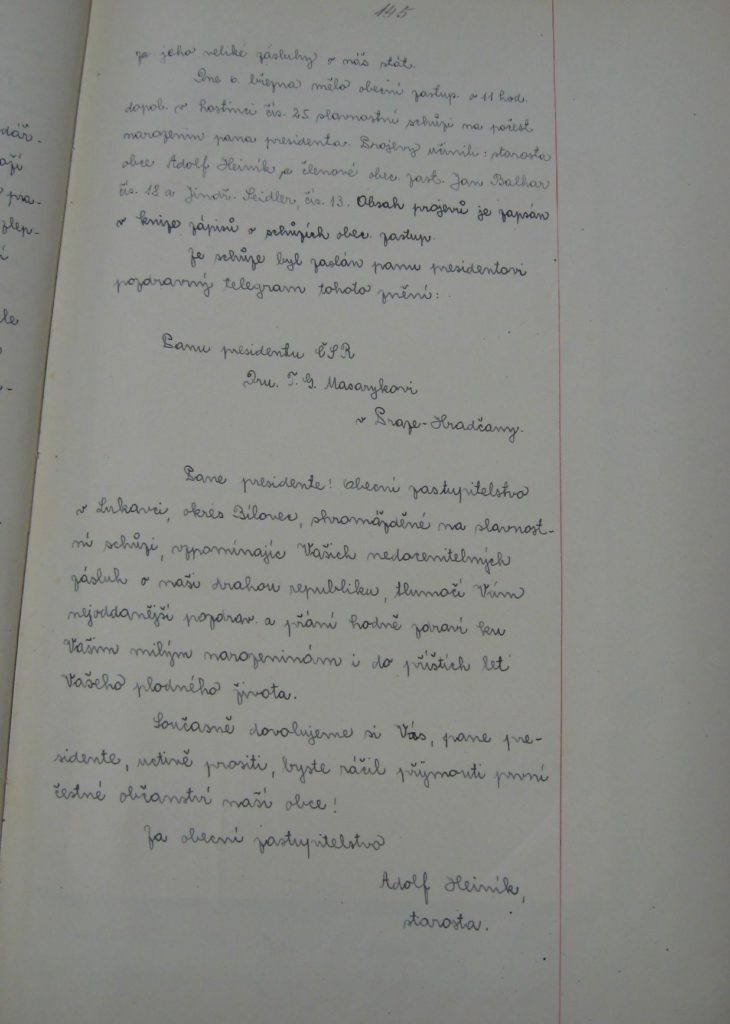 145
dář-
ají
pra-
zlep-
í
le
za jeho veliké zásluhy o náš stát.
Dne 6. března mělo obecní zastup. o 11 hod.
dopol. v hostinci čís. 25 slavnostní schůzi na počest
narozenin pana presidenta. Projevy učinili: starosta
obce Adolf Heinik a členové obec. zast. Jan Balhar
čís. 18 a Jindř. Seidler, čís. 13. Obsah projevů je zapsán
v knize zápisů o schůzích obec. zastup.
Ze schůze byl zaslán panu presidentovi
pozdravný telegram tohoto znění:
Panu presidentu ČSR
Dru. T. G. Masarykovi
v Praze-Hradčany.
Pane presidente! Obecní zastupitelstvo
v Lukavci, okres Bílovec, shromážděné na slavnost-
ní schůzi, vzpomínajíc Vašich nedocenitelných
zásluh o naši drahou republiku, tlumočí Vám
nejoddanější pozdrav a přání hodně zdraví ku
Vašim milým narozeninám i do příštích let
Vašeho plodného života.
Současně dovolujeme si Vás, pane pre-
sidente, uctivě prositi, byste ráčil přijmouti první
čestné občanství naší obce!
Za obecní zastupitelstvo
Adolf Heinik,
starosta.